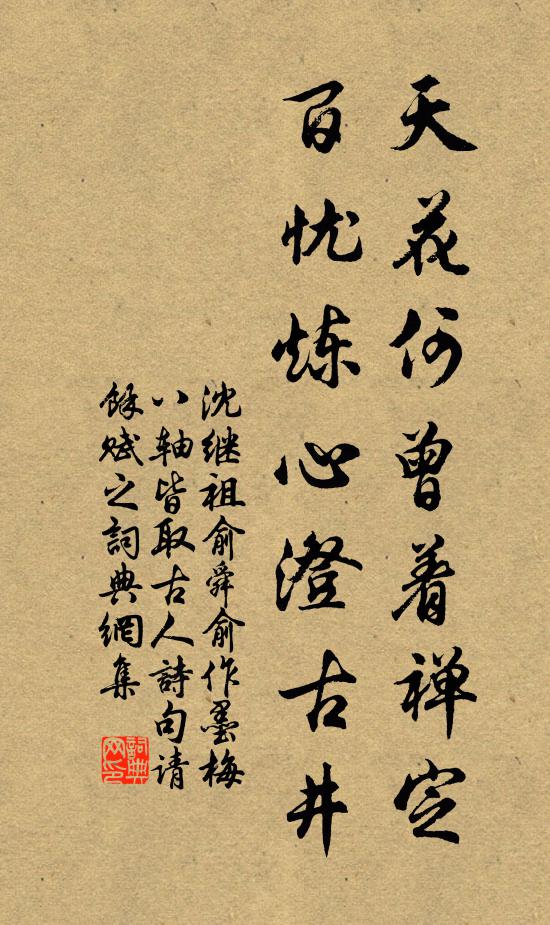 天花何曾着禅定
百忧炼心澄古井
沈继祖俞舜俞作墨梅
八轴皆取古人詩句请
餘赋之詞典網集
詞典
网印